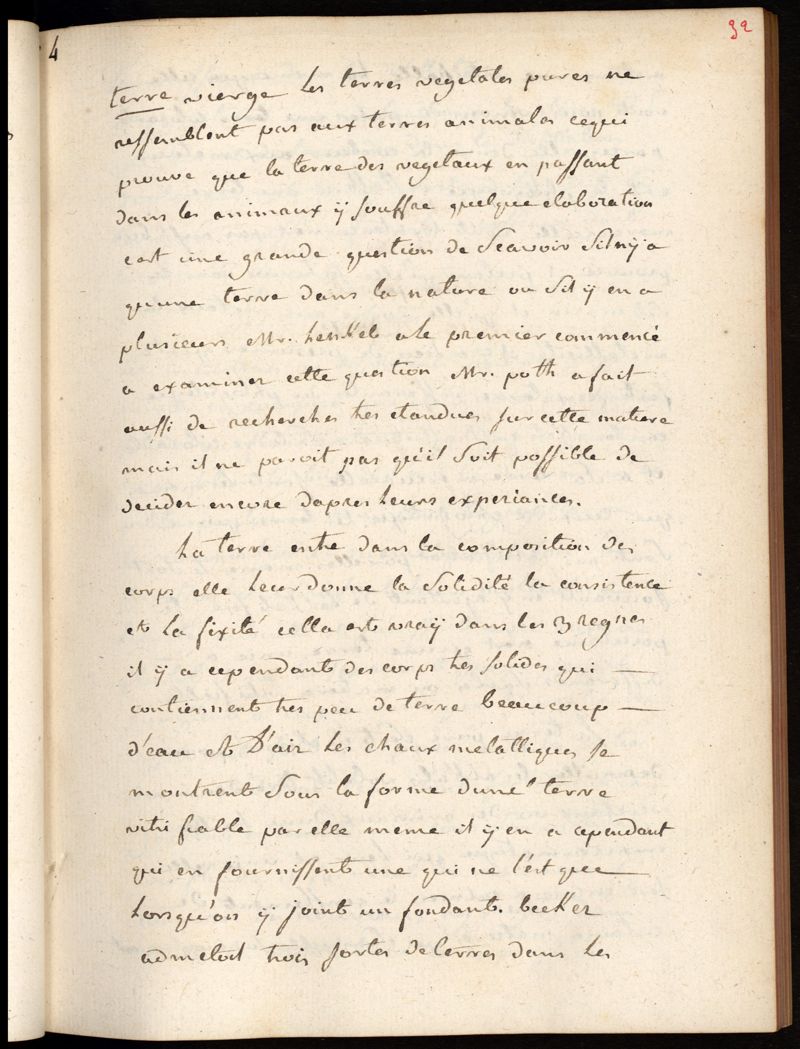 4
92
terre vierge les terres vegetales pures ne
ressemblent pas aux terres animales cequi
prouve que la terre des vegetaux en passant
dans les animaux ÿ souffre quelque elaboration
c'est une grande question de Scavoir Silnÿ a
quune terre dans la nature ou Sil ÿ en a
plusieurs Mr. henkel ale premier commencé
a examiner cette question Mr. poth a fait
aussi de recherches tres etandues sur cette matiere
mais il ne paroit pas qu'il Soit possible de
decider encore dapres leurs experiances.
La terre entre dans la composition des
corps elle leur donne la Solidité la consistence
et la fixité cella est vraÿ dans les 3 regnes
il ÿ a cependant des corps tres solides qui —
contiennent tres peu de terre beaucoup —
d'eau et D'air Les chaux metalliques se
montrent Sous la forme dune terre
vitrifiable par elle meme il ÿ en a cependant
qui en fournissent une qui ne l'est que
Lorsqu'on ÿ joint un fondant. becker
admetoit trois sortes de terres dans les